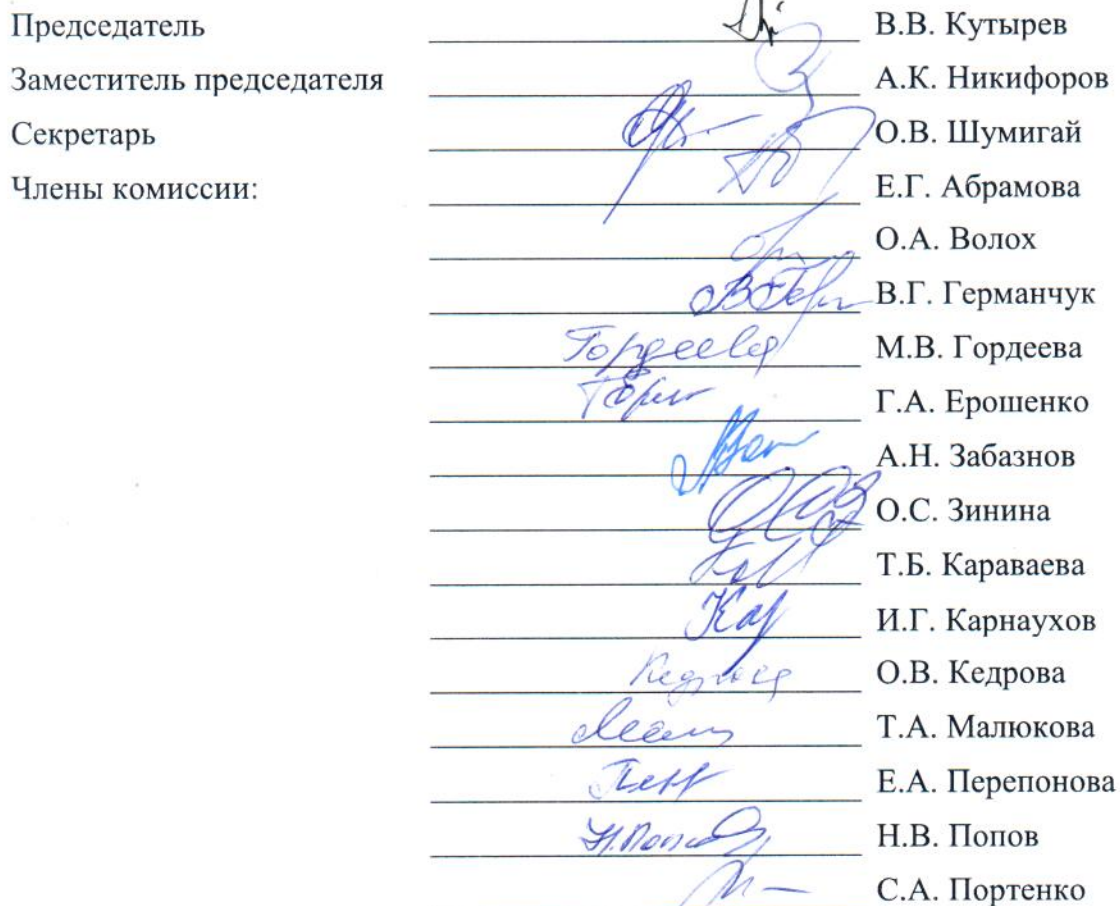 Председатель В.В. Кутырев
Заместитель председателя А.К. Никифоров
Секретарь О.В. Шумигай
Члены комиссии: Е.Г. Абрамова
О.А. Волох
В.Г. Германчук
Гордеева М.В. Гордеева
Г.А. Ерошенко
А.Н. Забазнов
О.С. Зинина
Т.Б. Караваева
Кар И.Г. Карнаухов
Кедрова О.В. Кедрова
Т.А. Малюкова
Е.А. Перепонова
Н.Попов Н.В. Попов
С.А. Портенко